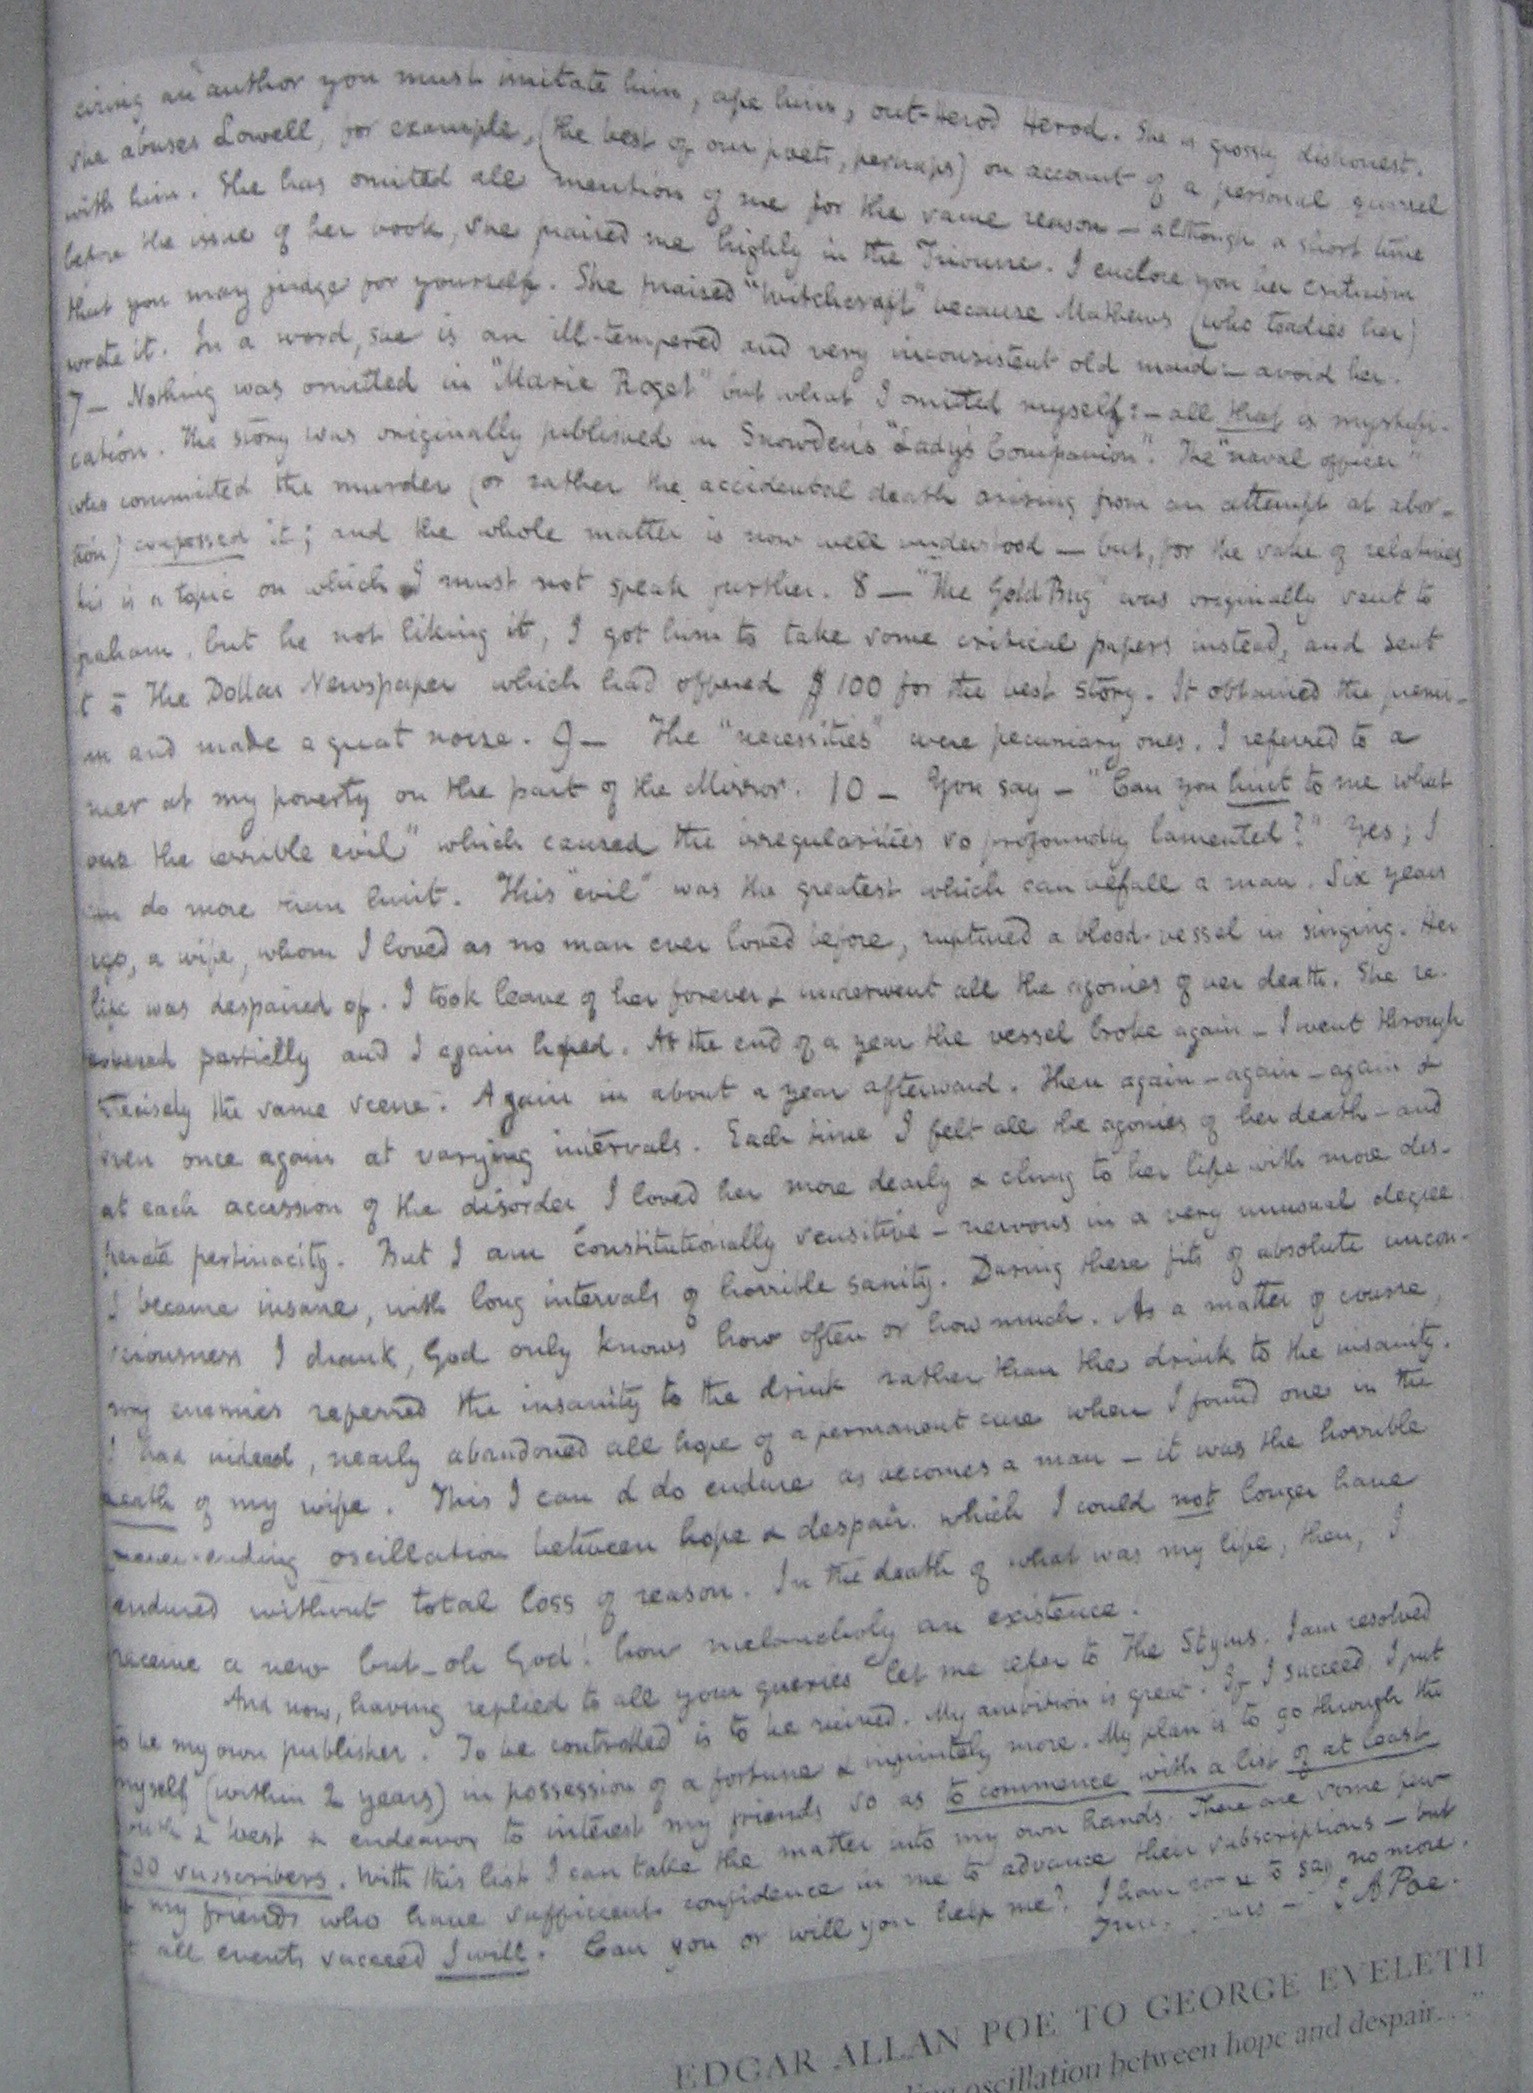 ciring an author you must imitate him, ape him, out-Herod Herod. She is grossly dishonest.
She abuses Lowell, for example, (the best of our poets, perhaps) on account of a personal quarrel
with him. She has omitted all mention of me for the same reason — although a short time
before the issue of her book, she praised me highly in the Tribune. I enclose you her criticism
that you may judge for yourself. She praised "Witchcraft" because Mathews (who toadies her)
wrote it. In a word, she is an ill-tempered and very inconsistent old maid — avoid her.
7 — Nothing was omitted in "Marie Roget" but what I omitted myself: — all that is mystifi-
cation. The story was originally published in Snowden's "Lady's Companion". The "naval officer"
who committed the murder (or rather the accidental death arising from an attempt at abor-
tion) confessed it; and the whole matter is now well understood — but, for the sake of relatives
his is a topic on which I must not speak further. 8 — "The Gold Bug" was originally sent to
raham, but he not liking it, I got him to take some critical papers instead, and sent
t to The Dollar Newspaper which had offered $100 for the best story. It obtained the premi-
m and made a great noise. 9 — The "necessities" were pecuniary ones. I referred to a
neer at my poverty on the part of the Mirror. 10 — You say — "Can you hint to me what
was the terrible evil" which caused the irregularities so profoundly lamented?" Yes; I
can do more than hint. This "evil" was the greatest which can befall a man. Six years
ago, a wife, whom I loved as no man ever loved before, ruptured a blood-vessel in singing. Her
life was despaired of. I took leave of her forever & underwent all the agonies of her death. She re-
covered partially and I again hoped. At the end of a year the vessel broke again — I went through
precisely the same scene. Again in about a year afterward. Then again — again — again &
even once again at varying intervals. Each time I felt all the agonies of her death — and
at each accession of the disorder I loved her more dearly & clung to her life with more des-
perate pertinacity. But I am constitutionally sensitive — nervous in a very unusual degree.
I became insane, with long intervals of horrible sanity. During these fits of absolute uncon-
sciousness I drank, God only knows how often or how much. As a matter of course,
my enemies referred the insanity to the drink rather than the drink to the insanity.
I had indeed, nearly abandoned all hope of a permanent cure when I found one in the
death of my wife. This I can & do endure as becomes a man — it was the horrible
never-ending oscillation between hope & despair which I could not longer have
endured without total loss of reason. In the death of what was my life, then, I
receive a new but — oh God! how melancholy an existence.
And now, having replied to all your queries let me refer to The Stylus. I am resolved
to be my own publisher. To be controlled is to be ruined. My ambition is great. If I succeed, I put
myself (within 2 years) in possession of a fortune & infinitely more. My plan is to go through the
South & West & endeavor to interest my friends so as to commence with a list of at least
500 subscribers. With this list I can take the matter into my own hands. There are some few
of my friends who have sufficient confidence in me to advance their subscriptions — but
t all events succeed I will. Can you or will you help me? I have room to say no more.
Truly Yours — E A Poe.
EDGAR ALLAN POE TO GEORGE EVELETH
oscillation between hope and despair. . ."